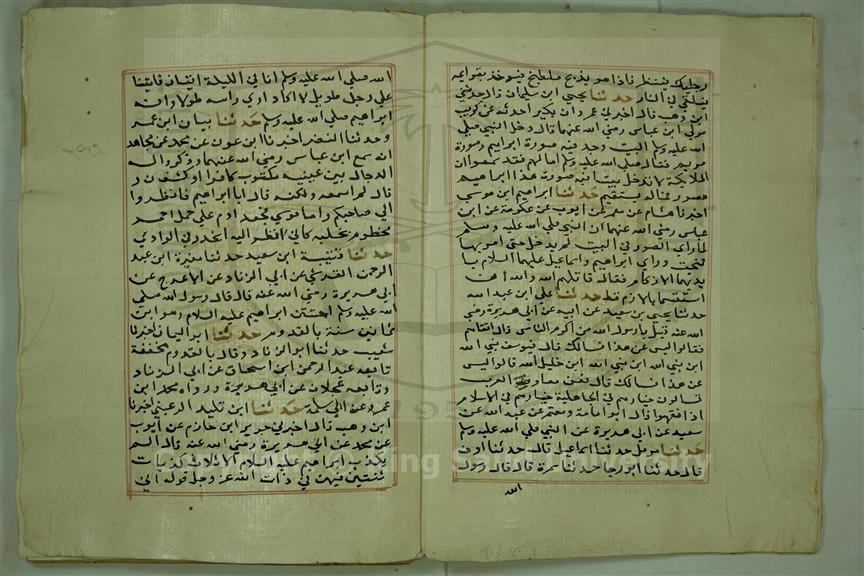 رجليك ينظر فاذا هو بذيخ ملطخ فيوخذ بقوايمه
فيلقي في النار حدثنا يحيي ابن سليمان قال حدثني
ابن وهب قال اخبرني عمرو ان بكيرا حدثه عن كريب
مولي ابن عباس رضي الله عنهما قال دخل النبي صلي
الله عليه وسلم البيت وجد فيه صورة ابراهيم وصورة
مريم فقال صلي الله عليه وسلم اما لهم فقد سمعوا ان
الملايكة لا تدخل بيتا فيه صورة هذا ابراهيم
مصور فماله يستقيم حدثنا ابراهيم ابن موسي
اخبرنا هشام عن معمر عن ايوب عن عكرمة عن ابن
عباس رضي الله عنهما ان النبي صلي الله عليه وسلم
لما راي الصور في البيت لم يدخل حتي امر بها
فمحيت وراي ابراهيم واسماعيل عليهما السلام با
يديهما الازلام فقال قاتلهم الله والله ان
استقسما بالازلام قط حدثنا علي ابن عبد الله
حدثنا يحيي بن سعيد عن ابيه عن ابي هريرة رضي
الله عنه قيل يا رسول الله من اكرم الناس قال اتقاهم
فقالوا ليس عن هذا نسالك قال فيوسف نبي الله
ابن نبي الله ابن نبي الله ابن خليل الله قالوا ليس
عن هذا نسالك قال فعن معادن العرب
تسالون خيارهم في الجاهلية خيارهم في الاسلام
اذا فقهوا قال ابو اسامة ومعتمر عن عبيد الله عن
سعيد عن ابي هريرة عن النبي صلي الله عليه وسلم
حدثنا مومل حدثنا اسماعيل قال حدثنا عوف
قال حدثنا ابو رجا حدثنا سمرة قال قال رسول
الله
الله صلي الله عليه وسلم اتاني الليلة اتيان فاتينا
علي رجل طويل لا اكاد اري راسه طولا وانه
ابراهيم صلي الله عليه وسلم حدثنا بيان ابن عمر
وحدثنا النضر اخبرنا ابن عون عن مجاهد
انه سمع ابن عباس رضي الله عنهما وذكروا له
الدجال بين عينيه مكتوب كافر او ك ف ر
قال لم اسمعه ولكنه قال اما ابراهيم فانظروا
الي صاحبكم واما موسي فجعد ادم علي جمل احمر
مخطوم بخلبة كاني انظر اليه انحدر في الوادي
حدثنا قتيبة ابن سعيد حدثنا مغيرة ابن عبد
الرحمن القرشي عن ابي الزناد عن الاعرج عن
ابي هريرة رضي الله عنه قال قال رسول الله صلي
الله عليه وسلم اختتن ابراهيم عليه السلام وهو ابن
ثمانين سنة بالقدوم حدثنا ابو اليمان اخبرنا
شعيب حدثنا ابو الزناد وقال بالقدوم مخففة
تابعه عبد الرحمن ابن اسحاق عن ابي الزناد
وتابعه عجلان عن ابي هريرة ورواه محمد ابن
عمرو عن ابي سلمة حدثنا ابن تليد الرعيني اخبرنا
ابن وهب قال اخبرني جرير ابن حازم عن ايوب
عن محمد عن ابي هريرة رضي الله عنه قال لم
يكذب ابراهيم عليه السلام الا ثلاث كذبات
ثنتين منهن في ذات الله عز وجل قوله اني